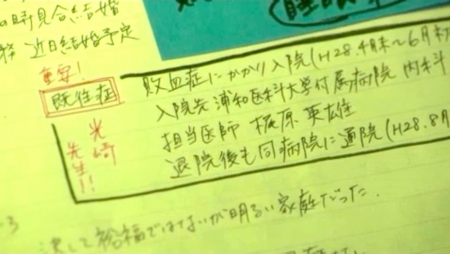 の時見合結婚
近日結婚予定
重要!
既往症
光崎
先生!!
敗血症にかかり入院(H28.4月末~6月初
入院先 浦和医科大学付属病院 内科
担当医師 梶原
退院後も同病院に通院(H28.8月
決して裕福ではないが明るい家庭だった。